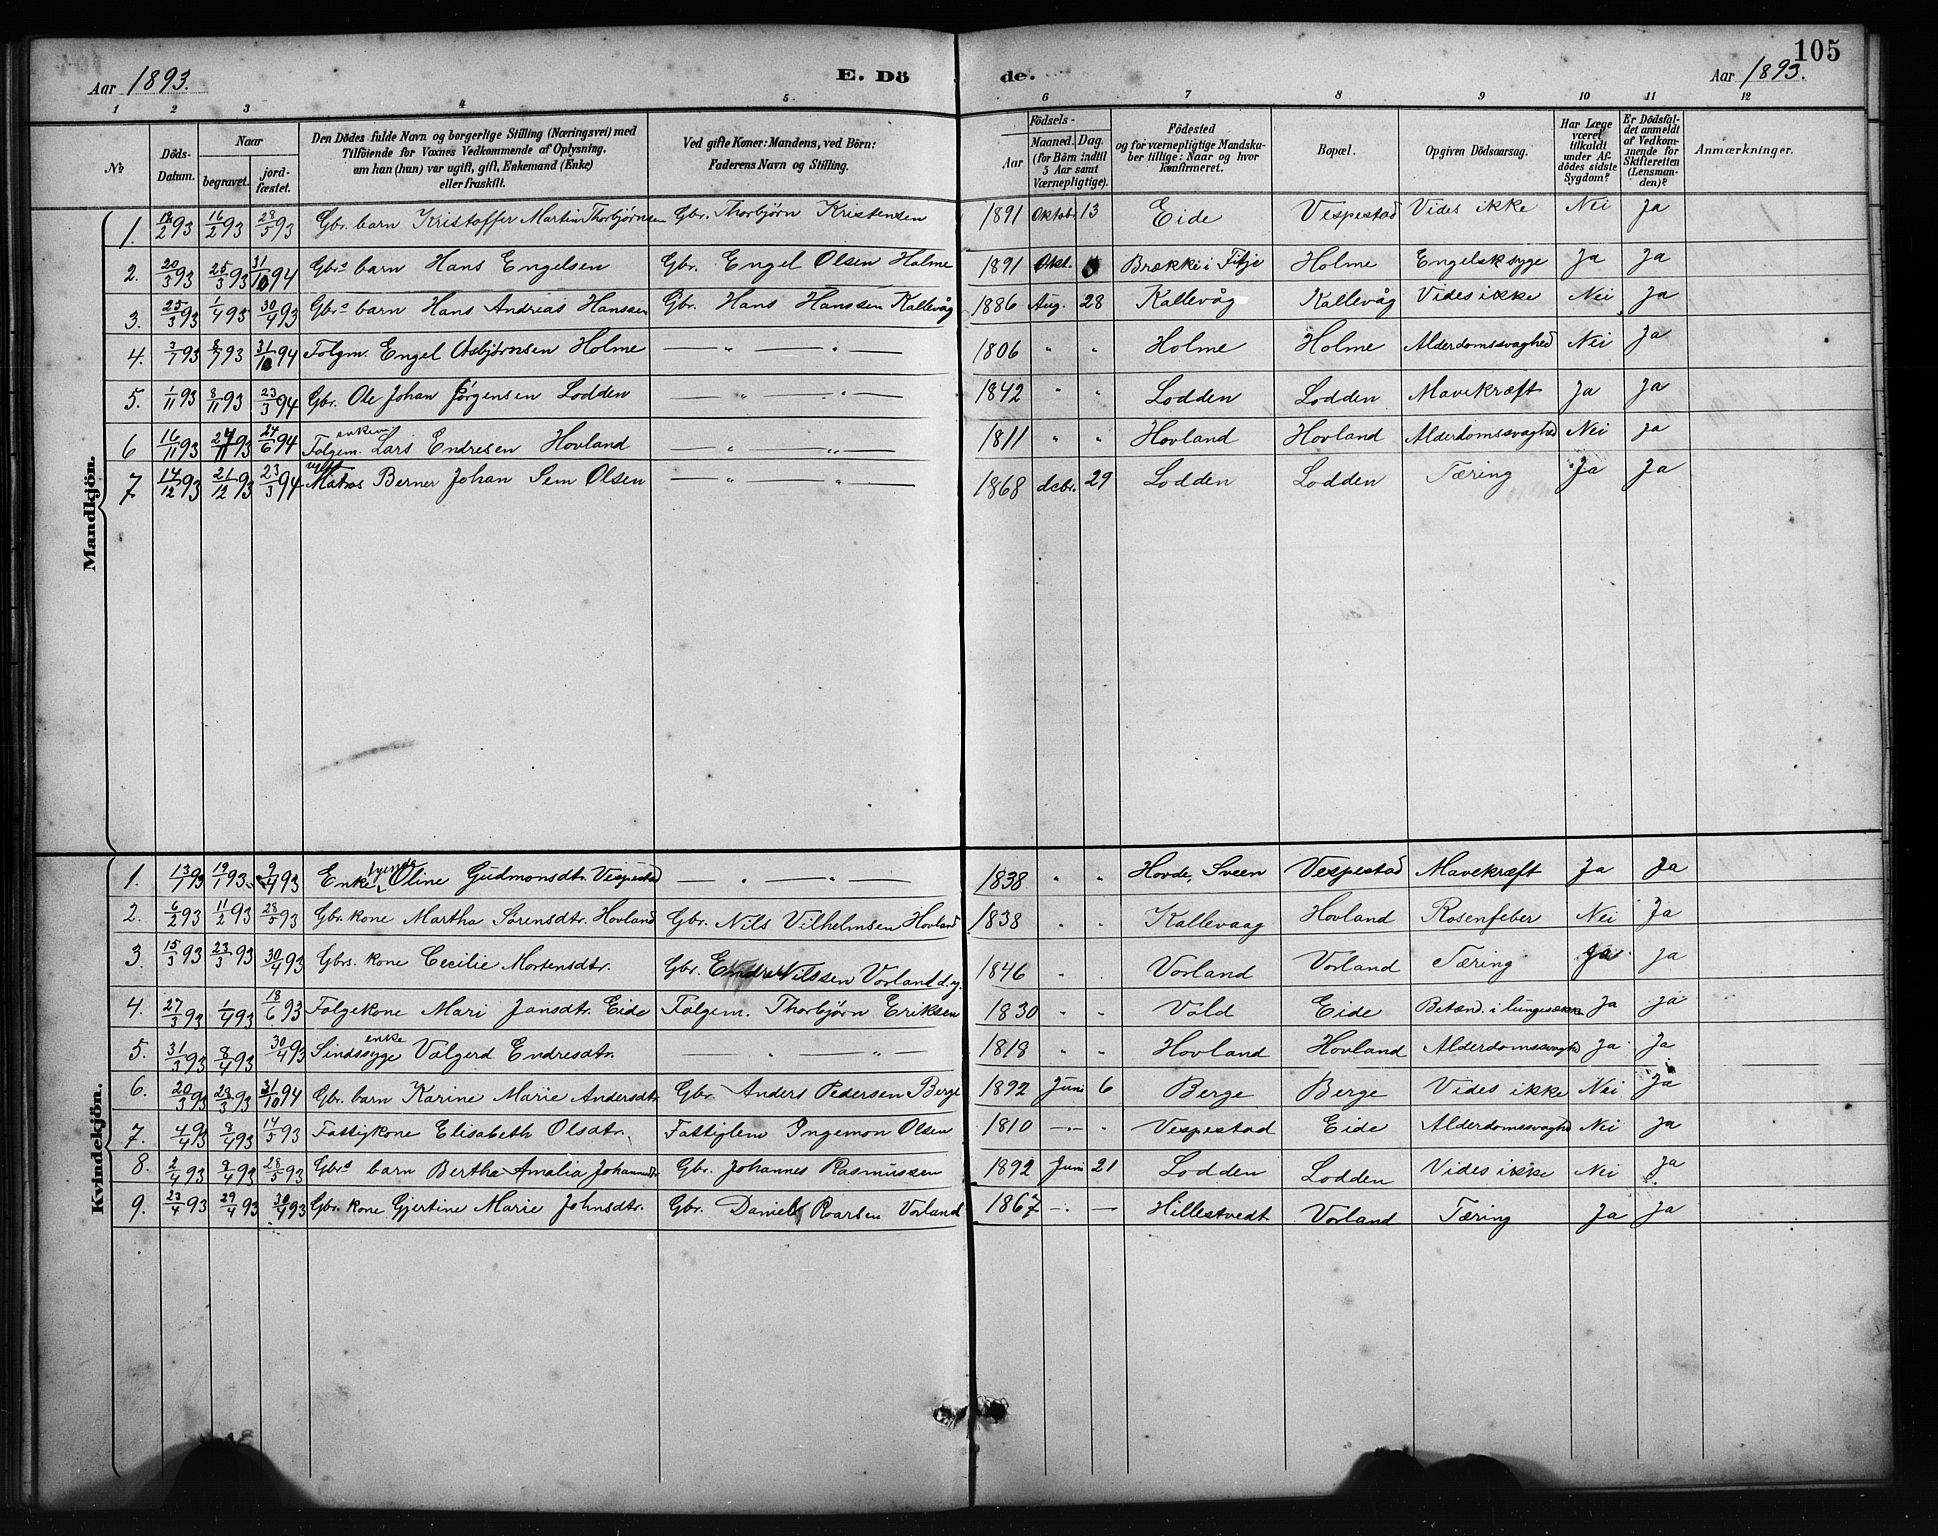 105
Aar 1893. E. Dö de. Aar 1893.
1 2 3 4 5. 6 7 8 9 10 11 12
№ Döds-Datum. Naar begravet. jord-fæstet. Den Dödes fulde Navn og borgerlige Stilling (Næringsvei) med Tilföiende for Voxnes Vedkommende af Oplysning, om han (hun) var ugift, gift, Enkemand (Enke) eller fraskilt. Ved gifte Koner: Mandens, ved Börn: Faderens Navn og Stilling. Födsels- Aar Maaned. Dag. (for Börn indtil 5 Aar samt Værnepligtige). Födested og for værnepligtige Mandskaber tillige: Naar og hvor konfirmeret. Bopæl. Opgiven Dödsaarsag. Har Læge været tilkaldt under Afdödes sidste Sygdom? Er Dödsfaldet anmeldt af Vedkommende for Skifteretten (Lensmanden)? Anmærkninger.
Mandkjön.
1. 12/2 93 16/2 93 28/5 93 Gbr. barn Kristoffer Martin Thorbjørnsen Gbr. Thorbjørn Kristensen 1891 Oktob. 13 Eide Vespestad Vides ikke Nei Ja
2. 20/3 93 25/3 93 31/10 94 Gbrs barn Hans Engelsen Gbr. Engel Olsen Holme 1891 Okt. Brække i Fitje Holme Engelsk syge Ja Ja
3. 25/3 93 1/4 93 30/4 93 Gbrs barn Hans Andreas Hanssen Gbr. Hans Hanssen Kallevåg 1886 Aug. 28 Kallevåg Kallevåg Vides ikke Nei Ja
4. 3/7 93 8/7 93 31/10 94 Folgm. Engel Asbjørnsen Holme — " — " — 1806 " " Holme Holme Alderdomssvaghed Nei Ja
5. 1/11 93 8/11 93 23/3 94 Gbr. Ole Johan Jörgensen Lodden — " — " — 1842 " " Lodden Lodden Mavekræft Ja Ja
6 16/11 93 24/11 93 24/6 94 Folgem. enkem. Lars Endresen Hovland — " — " — 1811 " " Hovland Hovland Alderdomssvaghed Nei Ja
7 14/12 93 21/12 93 23/3 94 ugift Matros Berner Johan Sem Olsen — " — " — 1868 dcbr. 29 Lodden Lodden Tæring Ja Ja
Kvindekjön.
1. 13/1 93 19/1 93 9/4 93 Enke Oline Gudmonsdtr. Vespestad — " — " — 1838 " " Hovde, Sveen Vespestad Mavekræft Ja Ja
2. 6/2 93 11/2 93 28/5 93 Gbr. kone Martha Sørensdtr. Hovland Gbr. Nils Vilhelmsen Hovland 1838 " " Kallevaag Hovland Rosenfeber Nei Ja
3. 15/3 93 23/3 93 30/4 93 Gbrs. kone Cecilie Mortensdtr. Gbr. Endre Nilssen Vorland d. y. 1846 " " Vorland Vorland Tæring Ja Ja
4. 27/3 93 1/4 93 18/6 93 Folgekone Mari Jansdtr. Eide Folgem. Thorbjørn Eriksen 1830 " " Vold Eide Betænd. i lungesækken Ja Ja
5. 31/3 93 8/4 93 30/4 93 Sindssyge enke Valgerd Endresdtr. — " — " — 1818 " " Hovland Hovland Alderdomssvaghed Ja Ja
6. 20/3 93 28/3 93 31/10 94 Gbr. barn Karine Marie Andersdtr. Gbr. Anders Pedersen Berge 1892 Juni 6 Berge Berge Vides ikke Nei Ja
7. 4/4 93 8/4 93 14/5 93 Fattigkone Elisabeth Olsdtr. Fattiglem Ingemon Olsen 1810 — " — " Vespestad Eide Alderdomssvaghed Nei Ja
8. 2/4 93 8/4 93 28/5 93 Gbrs barn Bertha Amalia Johannesdtr. Gbr. Johannes Rasmussen 1892 Juni 21 Lodden Lodden Vides ikke Nei Ja
9. 23/4 93 29/4 93 30/4 93 Gbr. kone Gjertine Marie Johnsdtr. Gbr. Daniel Roarsen Vorland 1867 — — Hillestvedt Vorland Tæring Ja Ja